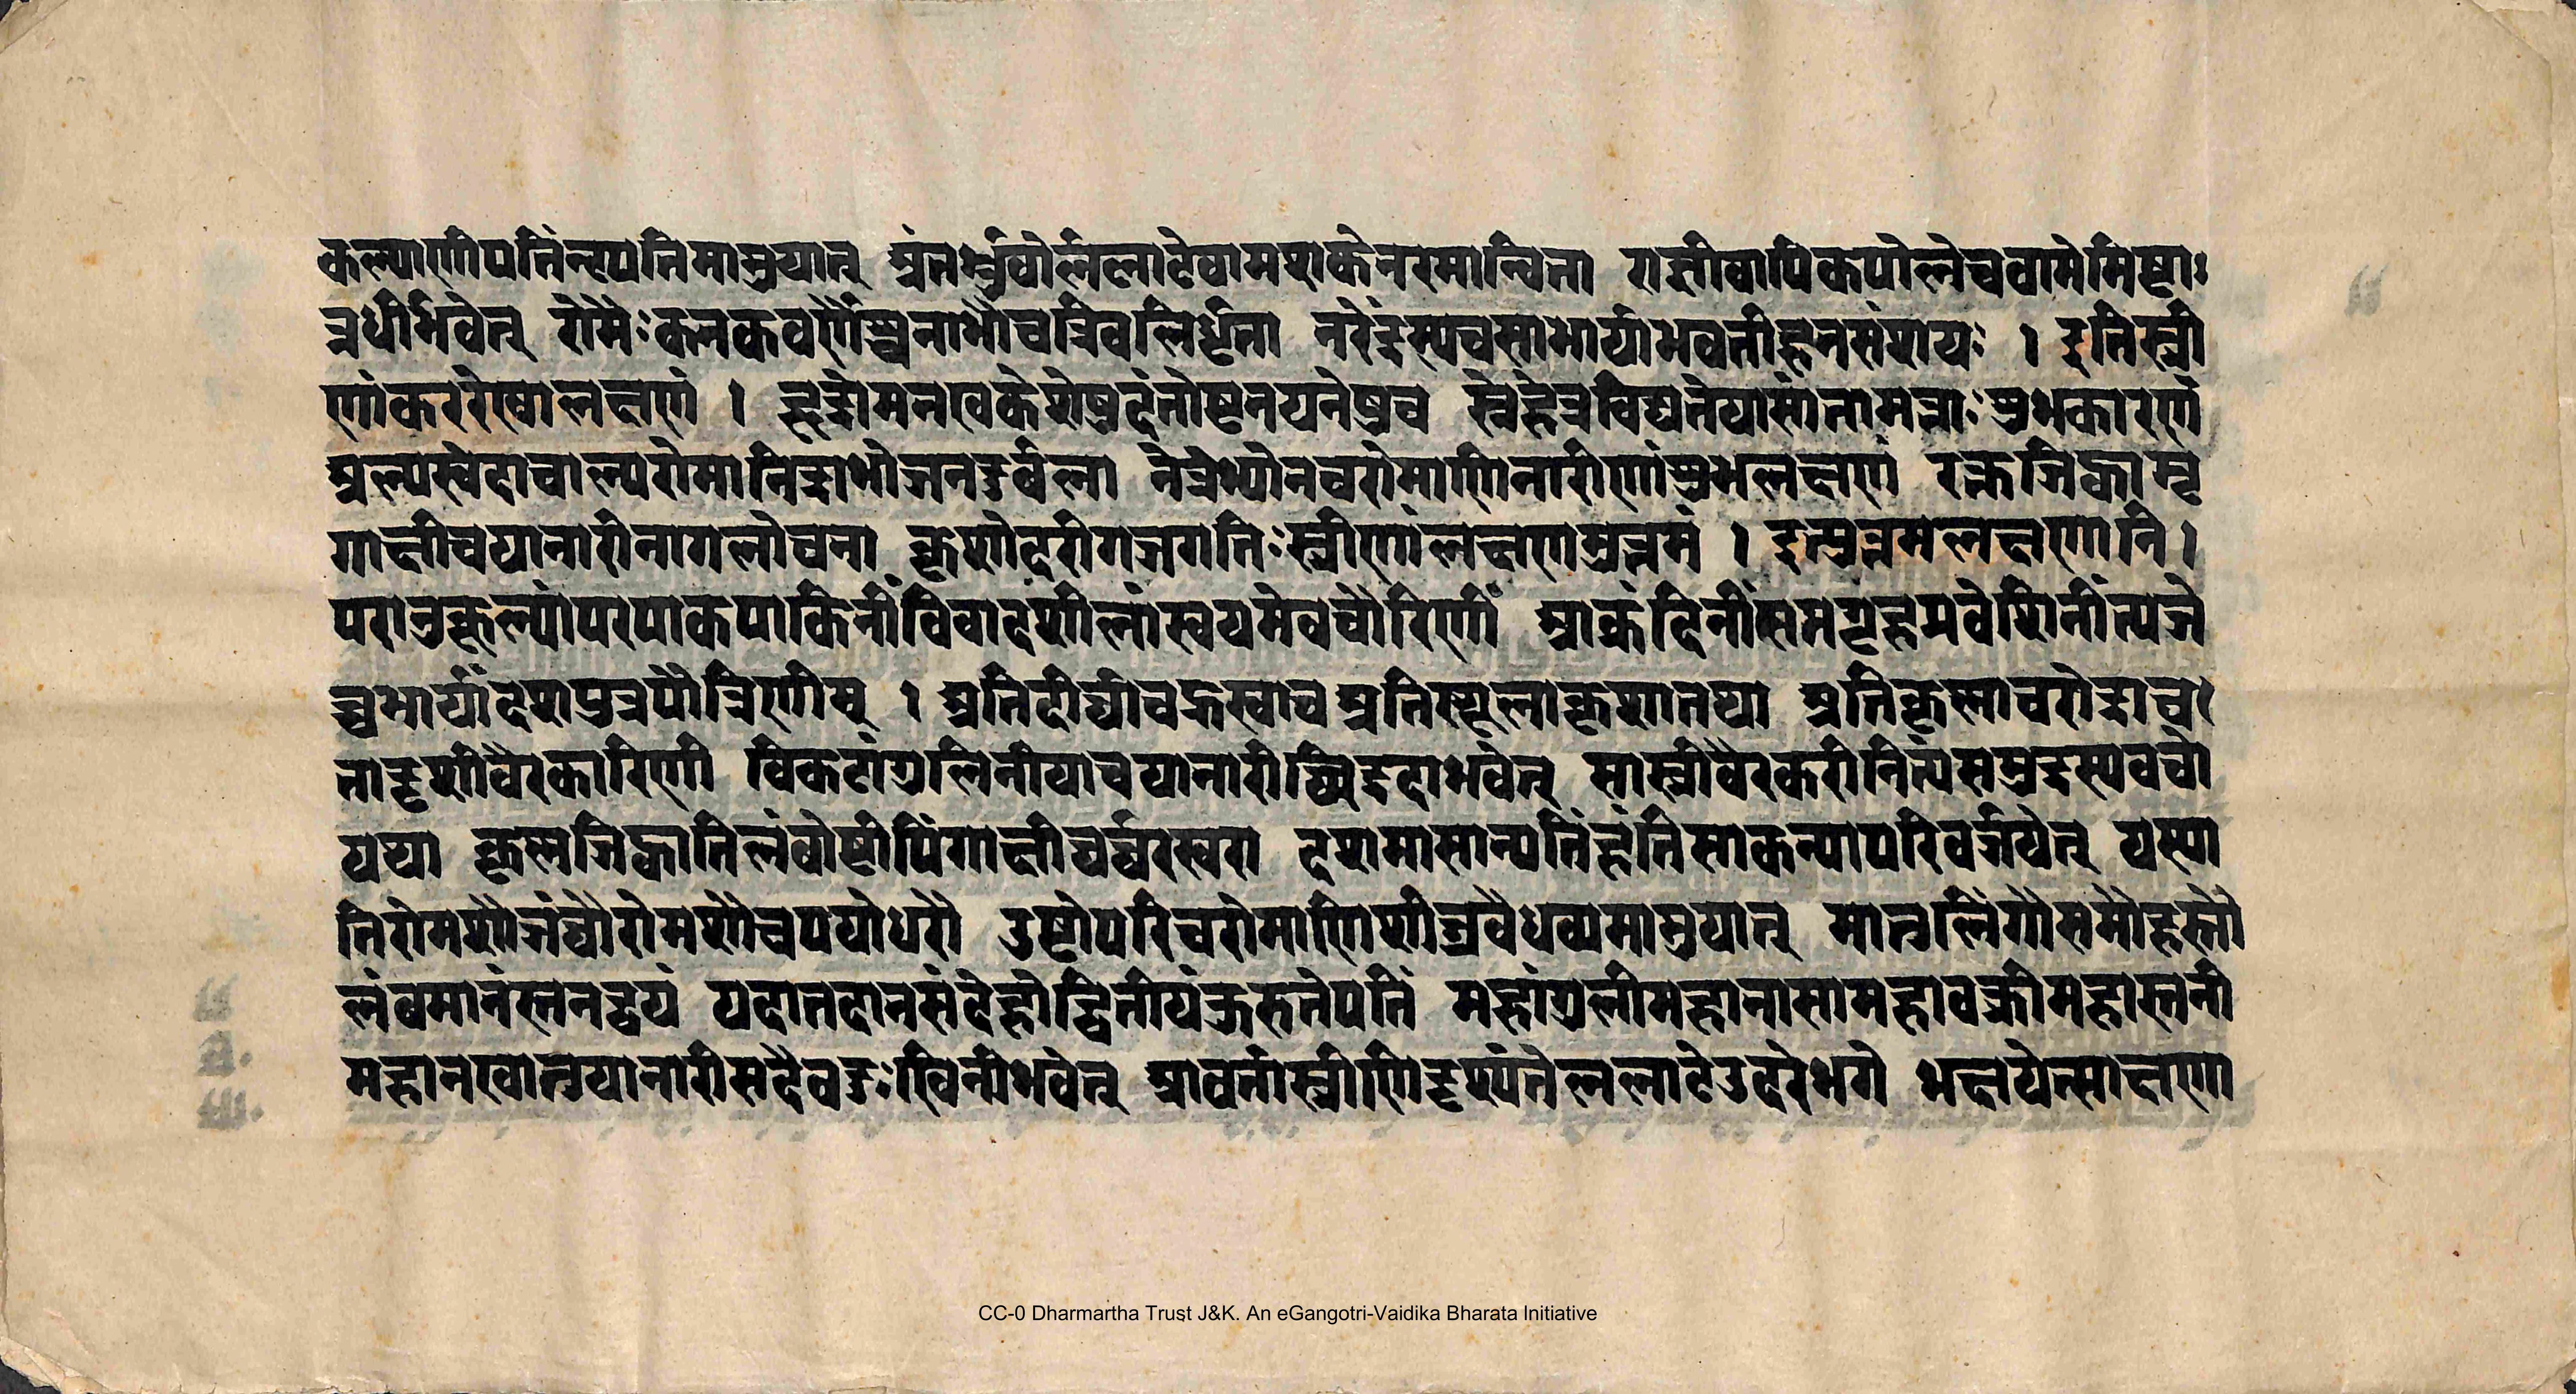 कल्याणीपतिंनृपतिमाप्नुयात् अंतर्भ्रुवोर्ललाटेवामशकेनरमान्विता राज्ञीवापिकपोलेचवामेमिष्टा
न्नधीर्भवेत् रोमैःकनकवर्णैश्चनाभौचत्रिवलिर्धृता नरेंद्रस्यचसाभार्याभवतीहनसंशयः । इतिस्त्री
णांकररेखालक्षणं । हृद्रोमनखकेशेषुदंतोष्टनयनेषुच स्नेहंत्रविद्यतेयासांतामताःशुभकारणं
अल्पस्वेदाचाल्परोमानिद्राभोजनदुर्बला नेत्रेभ्योनचरोमाणिनारीणांशुभलक्षणं रक्तजिह्वामृ
गाक्षीचयानारीनागलोचना कृशोदरीगजगतिःस्त्रीणांलक्षणमुत्तमं । इत्युत्तमलक्षणानि ।
परानुकूल्यांपरपाकपाकिनींविवादशीलांस्वयमेवचौरिणीं आक्रंदिनींसमगृहप्रवेशिनींत्यजे
च्चभार्यांदशपुत्रपौत्रिणीम् । अतिदीर्घाचह्रस्वाच अतिस्थूलाकृशातथा अतिकृष्णाचरोद्राच
तादृशीवैरकारिणी विकटांगुलिनीयाचयानारीछिद्रदाभवेत् सास्त्रीवैरकरीनित्यंसमुद्रस्यवचो
यथा कृष्णजिह्वातिलंबोष्टीपिंगाक्षीघर्घरस्वरा दशमासान्पतिंहंतिसाकन्यापरिवर्जयेत् यस्या
तिरोमशौजंघौरोमशौचपयोधरौ उष्टोपरिचरोमाणिशीघ्रवैधव्यमाप्नुयात् मातुलिंगौसमौहस्तौ
लंबमानंस्तनद्वयं यदातदानसंदेहोद्वितीयंकुरुतेपतिं महांगुलीमहानासामहावक्त्रीमहास्तनी
महानखातुयानारीसदैवदुःखिनीभवेत् आवर्तास्त्रीणिदृश्यंतेललाटेउदरेभगे भक्षयेत्साक्षणा
CC-0 Dharmartha Trust J&K. An eGangotri-Vaidika Bharata Initiative